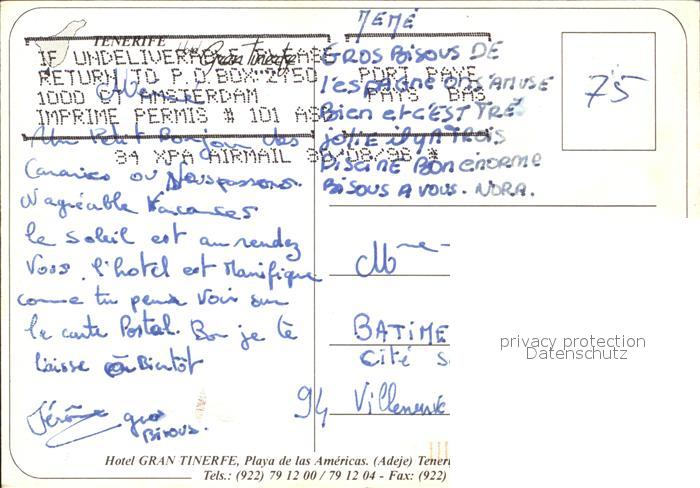 TENERIFE
Hotel Gran Tinerfe
IF UNDELIVERABLE PLEASE
RETURN TO P.O.BOX 2150
1000 CT AMSTERDAM
IMPRIME PERMIS # 101 AS
PORT PAYE
PAYS BAS
34 XPA AIRMAIL
Un Petit Bonjour des
Canaries ou Nous passons
d'agréable Vacances
le soleil est au rendez
Vous. l'hotel est Manifique
comme tu peux Voir sur
la carte Postal. Bon je te
laisse a Bientôt
Jérôme gros
Bisous.
MEMÉ
GROS BISOUS DE
l'espagne ON S'AMUSE
Bien et C'EST TRÉ
jolie il y A TROIS
PISCINE BON ENORME
BISOUS A VOUS. NORA.
75
Mme
BATIME
Cité S
94 Villeneuve
privacy protection
Datenschutz
Hotel GRAN TINERFE, Playa de las Américas. (Adeje) Teneri
Tels.: (922) 79 12 00 / 79 12 04 - Fax: (922)